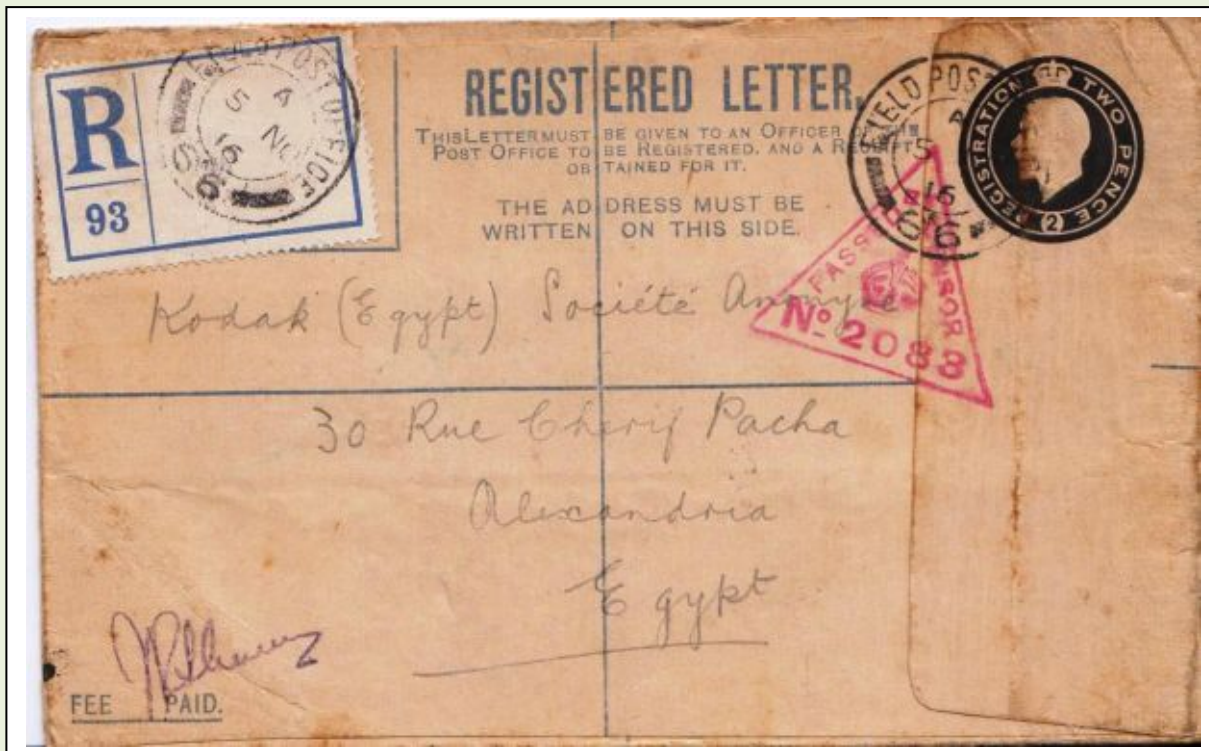 FIELD POST OFFICE
A
5 NO
16
R
93
REGISTERED LETTER.
THIS LETTER MUST BE GIVEN TO AN OFFICER OF THE
POST OFFICE TO BE REGISTERED, AND A RECEIPT
OBTAINED FOR IT.
THE ADDRESS MUST BE
WRITTEN ON THIS SIDE.
FIELD POST
5
16
66
REGISTRATION TWO PENCE (2)
PASSED
No 2083
Kodak (Egypt) Société Anonyme
30 Rue Cherif Pacha
Alexandria
Egypt
FEE PAID.